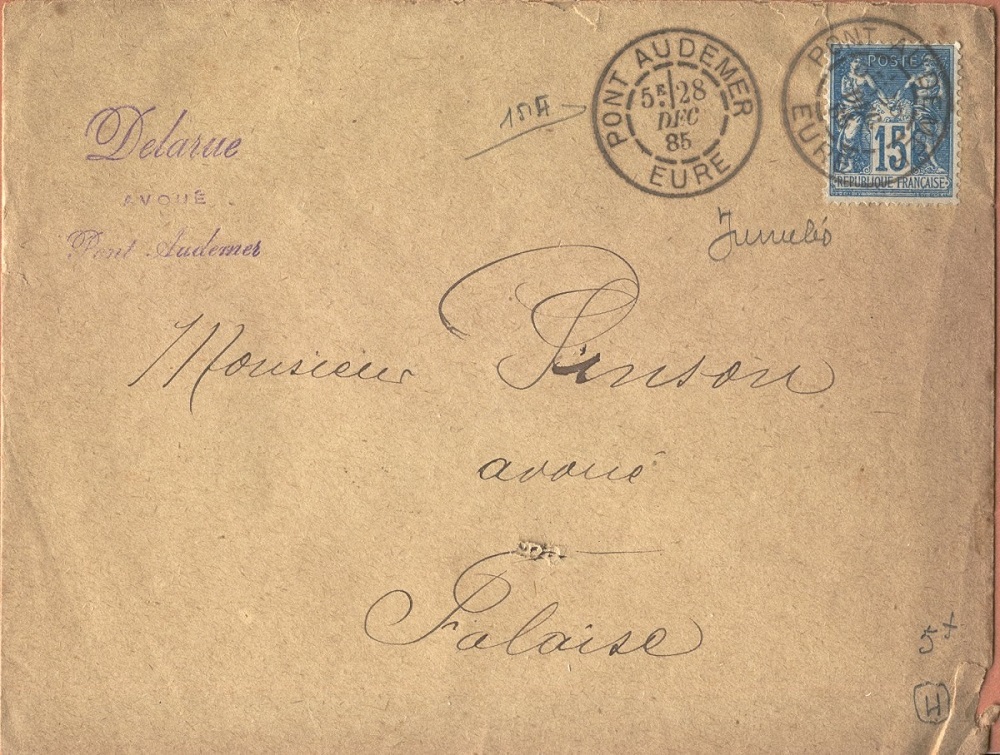 Delarue
AVOUÉ
Pont Audemer
PONT AUDEMER
5E 28
DEC
85
EURE
PONT AUDEMER
EURE
POSTE
15
REPUBLIQUE FRANÇAISE
Monsieur Pinson
avoué
Falaise
5+
H